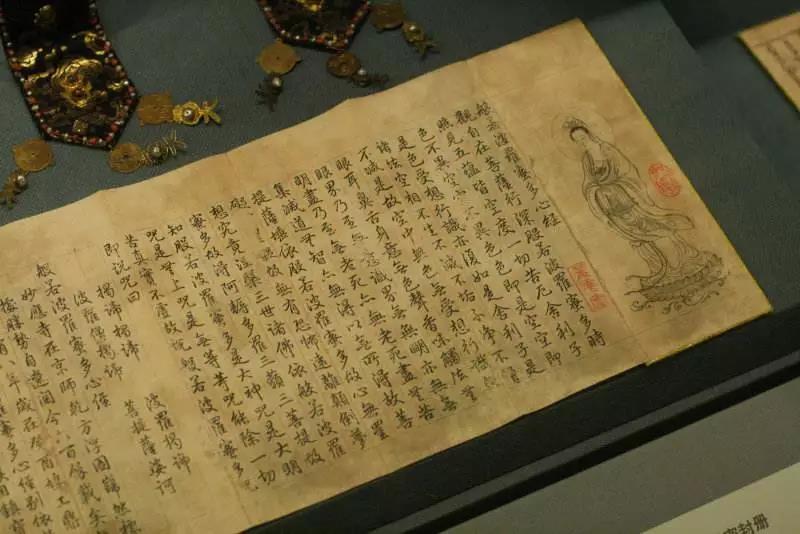 般若波羅蜜多心經
觀自在菩薩行深般若波羅蜜多時
照見五蘊皆空度一切苦厄舍利子
色不異空空不異色色即是空空即
是色受想行識亦復如是舍利子是
諸法空相不生不滅不垢不淨不增
不減是故空中無色無受想行識無
眼耳鼻舌身意無色聲香味觸法無
眼界乃至無意識界無無明亦無無
明盡乃至無老死亦無老死盡無苦
集滅道無智亦無得以無所得故菩
提薩埵依般若波羅蜜多故心無罣
礙無罣礙故無有恐怖遠離顛倒夢
想究竟涅槃三世諸佛依般若波羅
蜜多故得阿耨多羅三藐三菩提故
知般若波羅蜜多是大神咒是大明
咒是無上咒是無等等咒能除一切
苦真實不虛故說般若波羅蜜多咒
即說咒曰
揭諦揭諦 波羅揭諦
波羅僧揭諦 菩提薩婆訶
般若波羅蜜多心經
妙應寺在京師 方浮圖巋然
勝勢自遼閱今八百餘載矣
年歲在癸酉鳩工鼎
封册